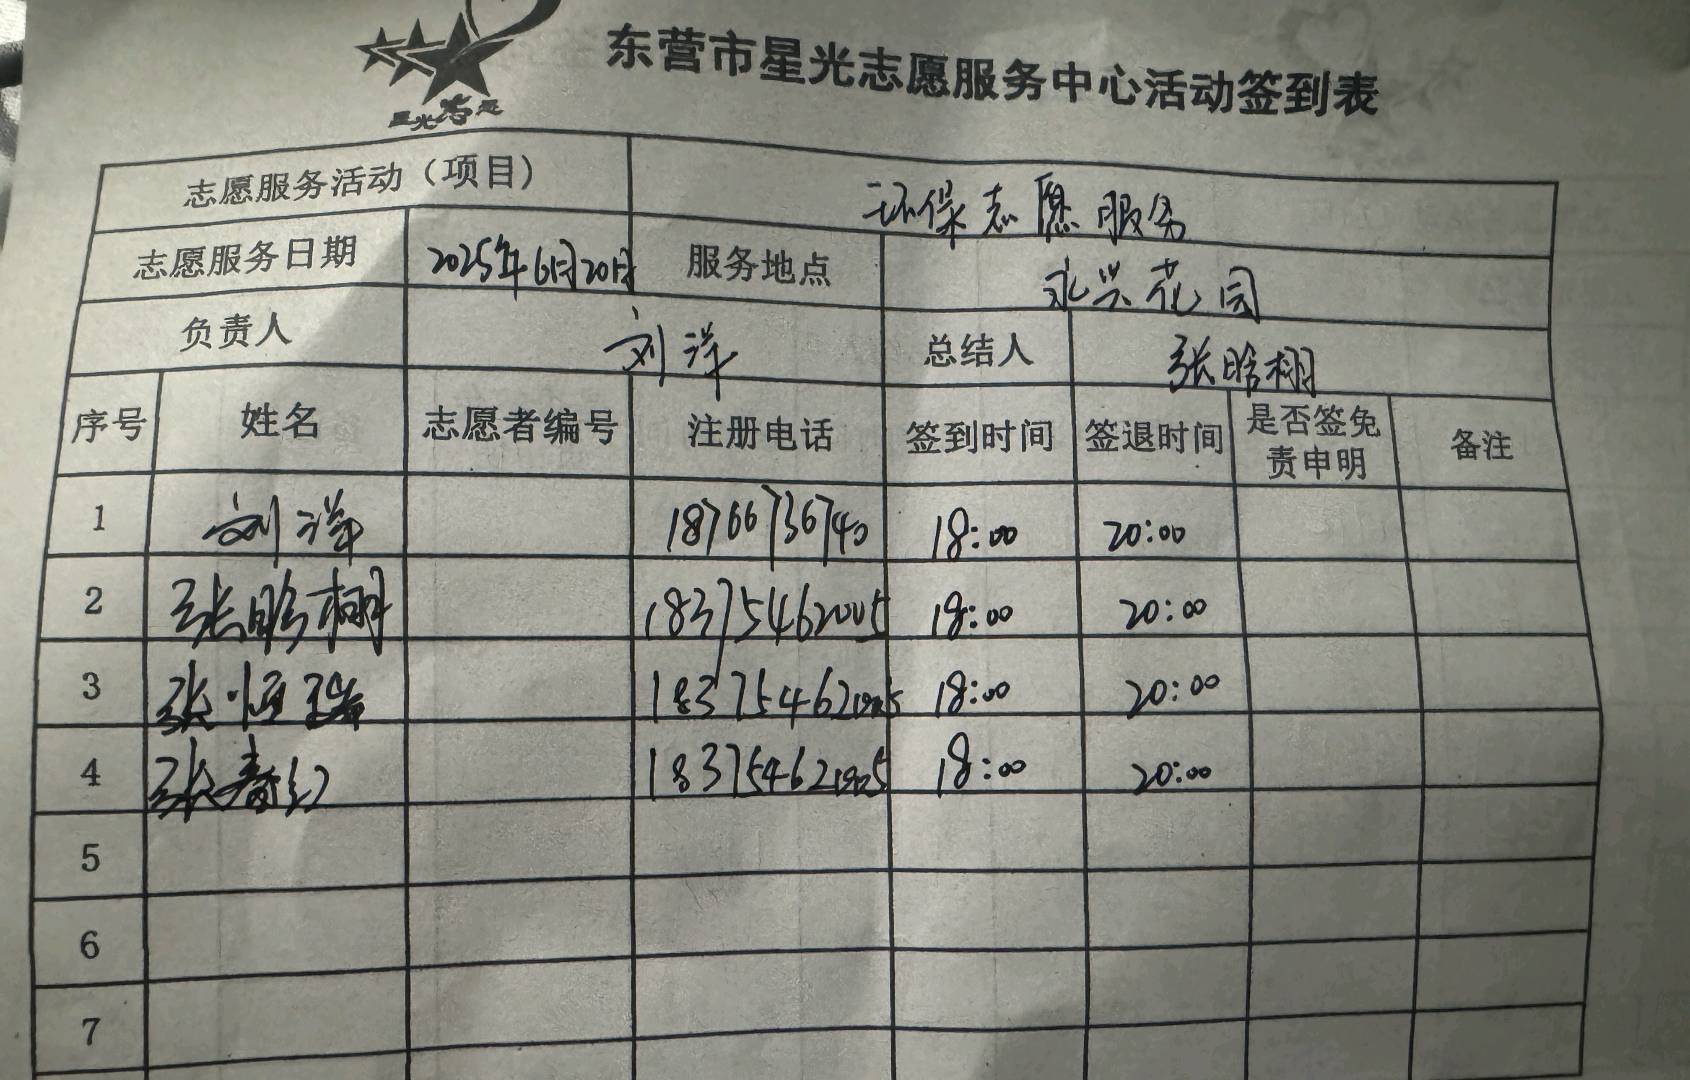 星光志愿
东营市星光志愿服务中心活动签到表
志愿服务活动（项目） 环保志愿服务
志愿服务日期 2025年6月20日 服务地点 永兴花园
负责人 刘洋 总结人 张晗栩
序号 姓名 志愿者编号 注册电话 签到时间 签退时间 是否签免责申明 备注
1 刘洋 18766736740 18:00 20:00
2 张晗栩 18375462005 18:00 20:00
3 张恒瑞 18:00 20:00
4 张春红 18:00 20:00
5
6
7